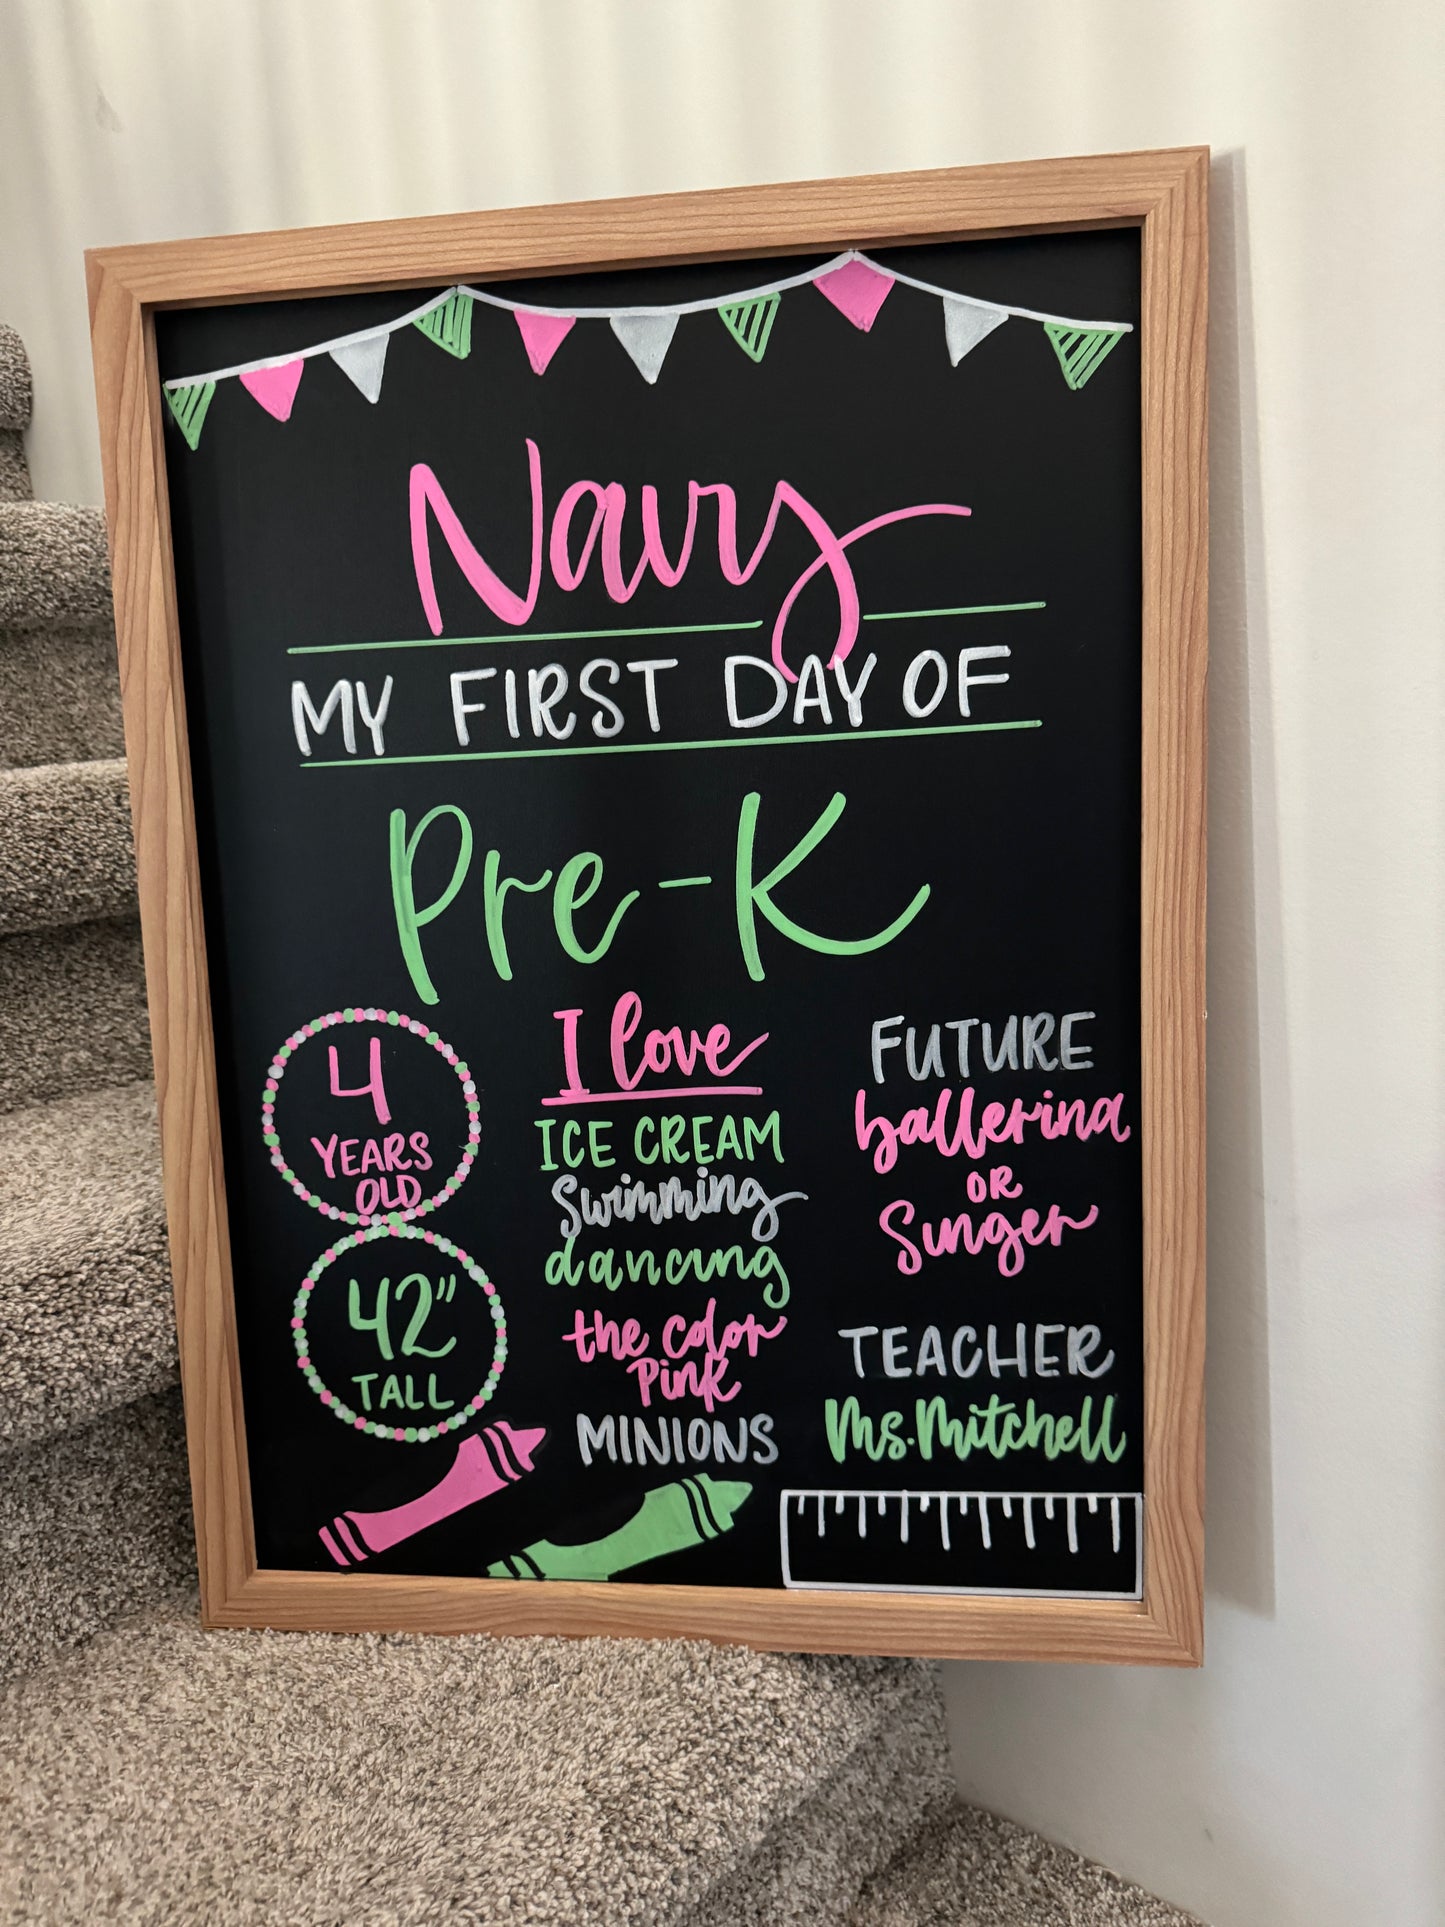 Navy
MY FIRST DAY OF
Pre-K
4
YEARS
OLD
42"
TALL
I love
ICE CREAM
Swimming
dancing
the color
Pink
MINIONS
FUTURE
ballerina
OR
Singer
TEACHER
Ms. Mitchell